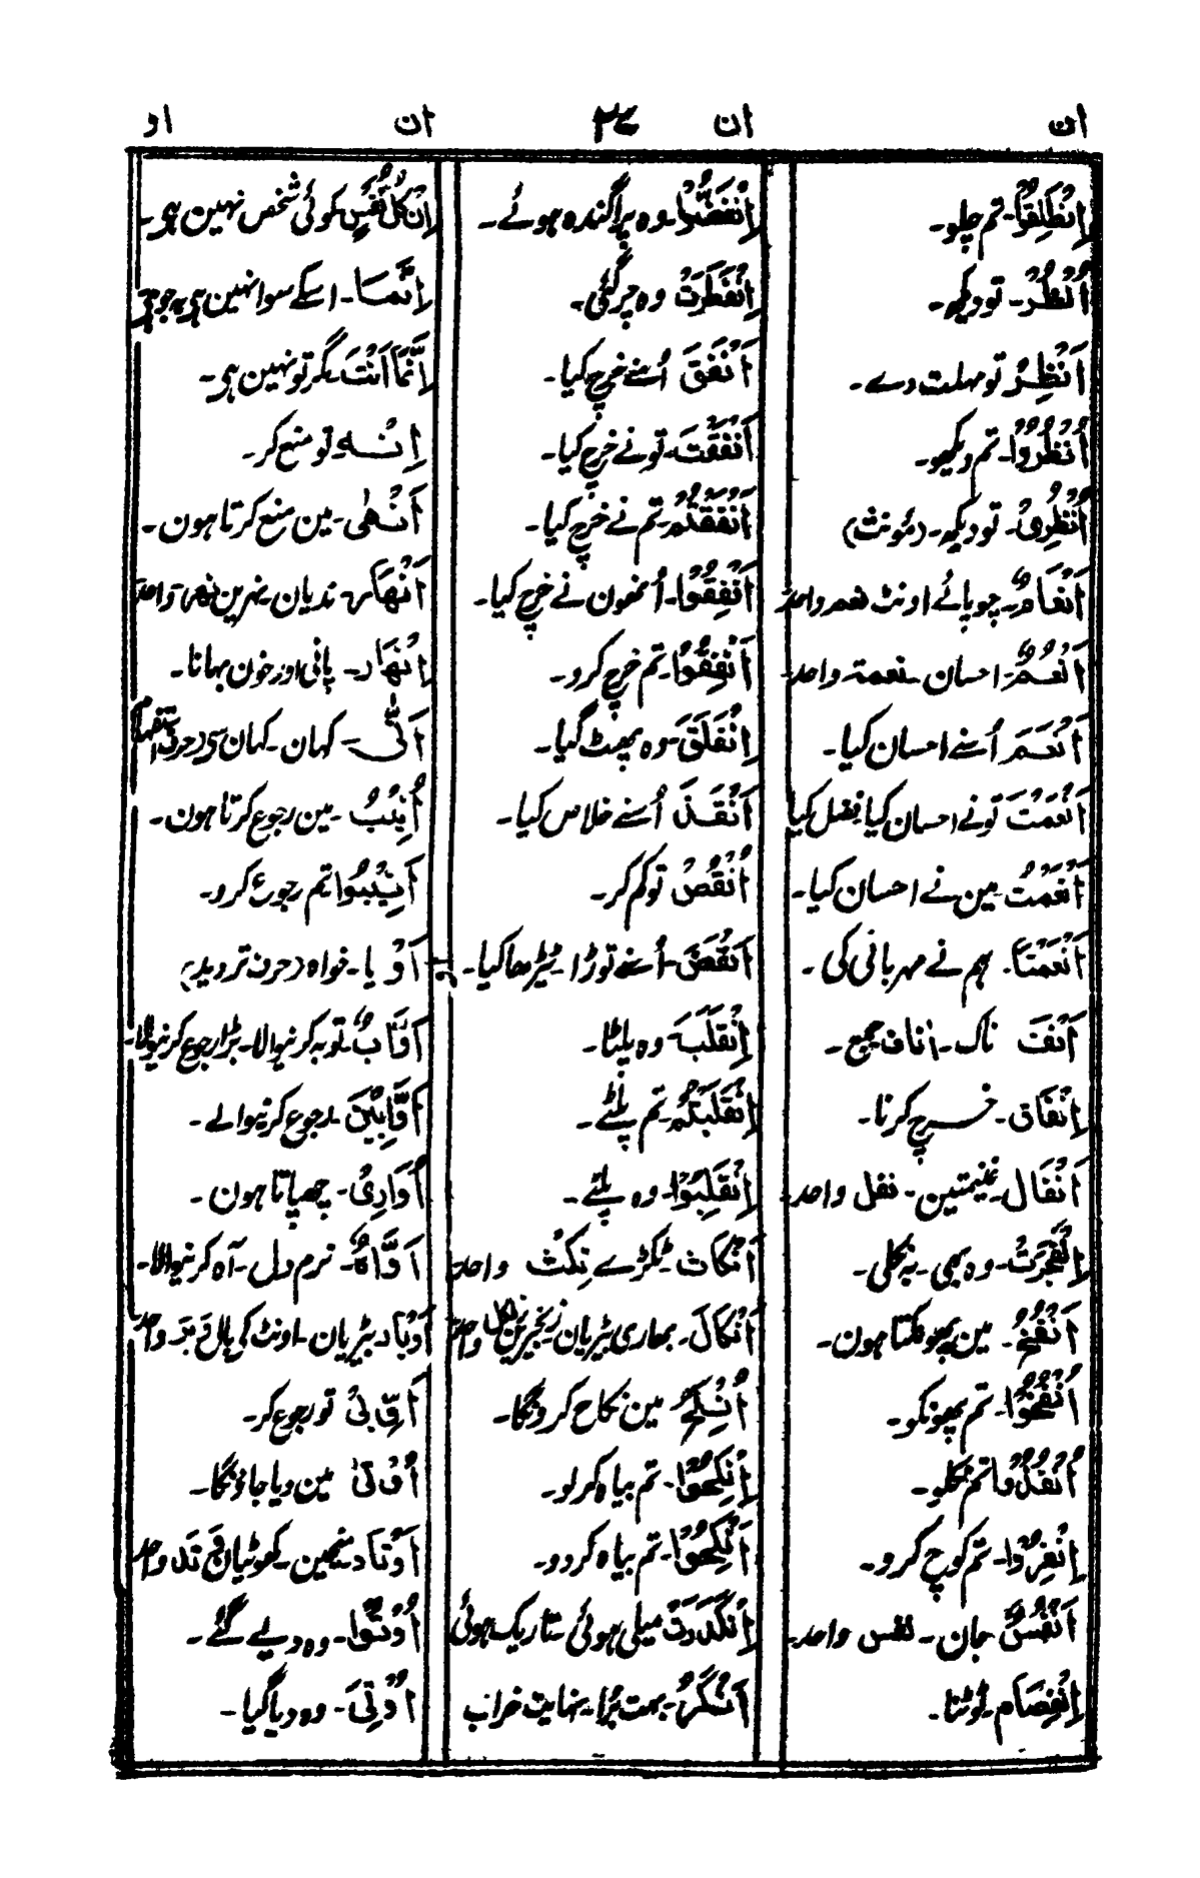 ان
ان
۲۷
ان
او
اِنْطَلِقُوْا۔ تم چلو۔
اُنْظُرْ۔ تو دیکھ۔
اَنْظِرْ تو مہلت دے۔
اُنْظُرُوْا۔ تم دیکھو۔
اُنْظُرِیْ۔ تو دیکھ۔ (مؤنث)
اَنْعَامٌ۔ چوپائے اونٹ نعم واحد
اَنْعُمٌ۔ احسان۔ نعمة واحد۔
اَنْعَمَ اُسنے احسان کیا۔
اَنْعَمْتَ تونے احسان کیا فضل کیا
اَنْعَمْتُ مین نے احسان کیا۔
اَنْعَمْنَا۔ ہم نے مہربانی کی۔
اَنْفَ ناک۔ اٰناف جمع۔
اِنْفَاق۔ خرچ کرنا۔
اَنْفَال۔ غنیمتین۔ نفل واحد۔
اِنْفَجَرَتْ۔ وہ بہی۔ بہ نکلی۔
اَنْفُخُ۔ مین پھونکتا ہون۔
اُنْفُخُوْا۔ تم پھونکو۔
اُنْفُذُوْا تم نکلو۔
اِنْفِرُوْا۔ تم کوچ کرو۔
اَنْفُسٌ جان۔ نفس واحد۔
اِنْفِصَام۔ ٹوٹنا۔
اِنْفَضُّوْا۔ وہ پراگندہ ہوئے۔
اِنْفَطَرَتْ وہ چر گئی۔
اَنْفَقَ اُسنے خرچ کیا۔
اَنْفَقْتَ۔ تونے خرچ کیا۔
اَنْفَقْتُمْ۔ تم نے خرچ کیا۔
اَنْفَقُوْا۔ اُنھون نے خرچ کیا۔
اَنْفِقُوْا۔ تم خرچ کرو۔
اِنْفَلَقَ۔ وہ پھٹ گیا۔
اَنْقَذَ اُسنے خلاص کیا۔
اُنْقُصْ تو کم کر۔
اَنْقَضَ۔ اُسنے توڑا۔ ٹیڑھا کیا۔
اِنْقَلَبَ۔ وہ پلٹا۔
اِنْقَلَبْتُمْ۔ تم پلٹے۔
اِنْقَلَبُوْا۔ وہ پلٹے۔
اَنْكَاث۔ ٹکڑے نِکْث واحد
اَنْكَالَ۔ بھاری بیڑیان زنجیرین نکل واحد
اُنْكِحَ مین نکاح کردونگا۔
اِنْكِحُوْا۔ تم بیاہ کرلو۔
اَنْكِحُوْا۔ تم بیاہ کردو۔
اِنْكَدَرَتْ میلی ہوئی۔ تاریک ہوئی
اَنْكَرُ۔ بہت بُرا۔ نہایت خراب
اِنْ كُلُّ نَفْسٍ کوئی شخص نہین ہی۔
اِنَّمَا۔ اسکے سوا نہین ہی یہ جو ہی
اِنَّمَا اَنْتَ مگر تو نہین ہی۔
اِنْهَ۔ تو منع کر۔
اَنْهٰی۔ مین منع کرتا ہون۔
اَنْهَار۔ ندیان۔ نہرین نهر واحد
اِنْهَار۔ پانی اور خون بہانا۔
اَنّٰی۔ کہان۔ کہان سی (حرف استفہام)
اُنِیْبُ۔ مین رجوع کرتا ہون۔
اَنِیْبُوْا تم رجوع کرو۔
اَوْ یا۔ خواہ (حرف تردید)
اَوَّابٌ۔ توبہ کرنیوالا۔ بڑا رجوع کرنیوالا۔
اَوَّابِیْنَ۔ رجوع کرنیوالے۔
اُوَارِیْ۔ چھپاتا ہون۔
اَوَّاهٌ۔ نرم دل۔ آہ کرنیوالا۔
اَوْبَار۔ اونٹ کی وبر واحد
اَوِّبِیْ تو رجوع کر۔
اُوْتٰی مین دیا جاؤنگا۔
اَوْتَاد۔ میخین۔ کھونٹیان وَتَد واحد
اُوْتُوْا۔ وہ دیے گئے۔
اُوْتِیَ۔ وہ دیا گیا۔